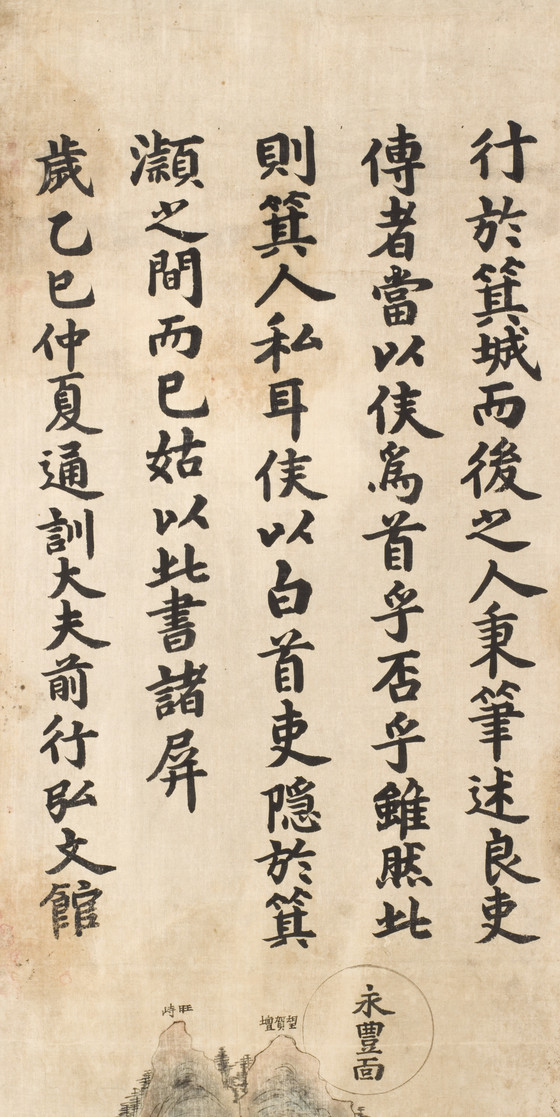 行於箕城而後之人秉筆述良吏
傳者當以侯爲首乎否乎雖然此
則箕人私耳侯以白首吏隱於箕
潁之間而已姑以此書諸屛
歲乙巳仲夏通訓大夫前行弘文館
永豊面
望賀壇
旺峙